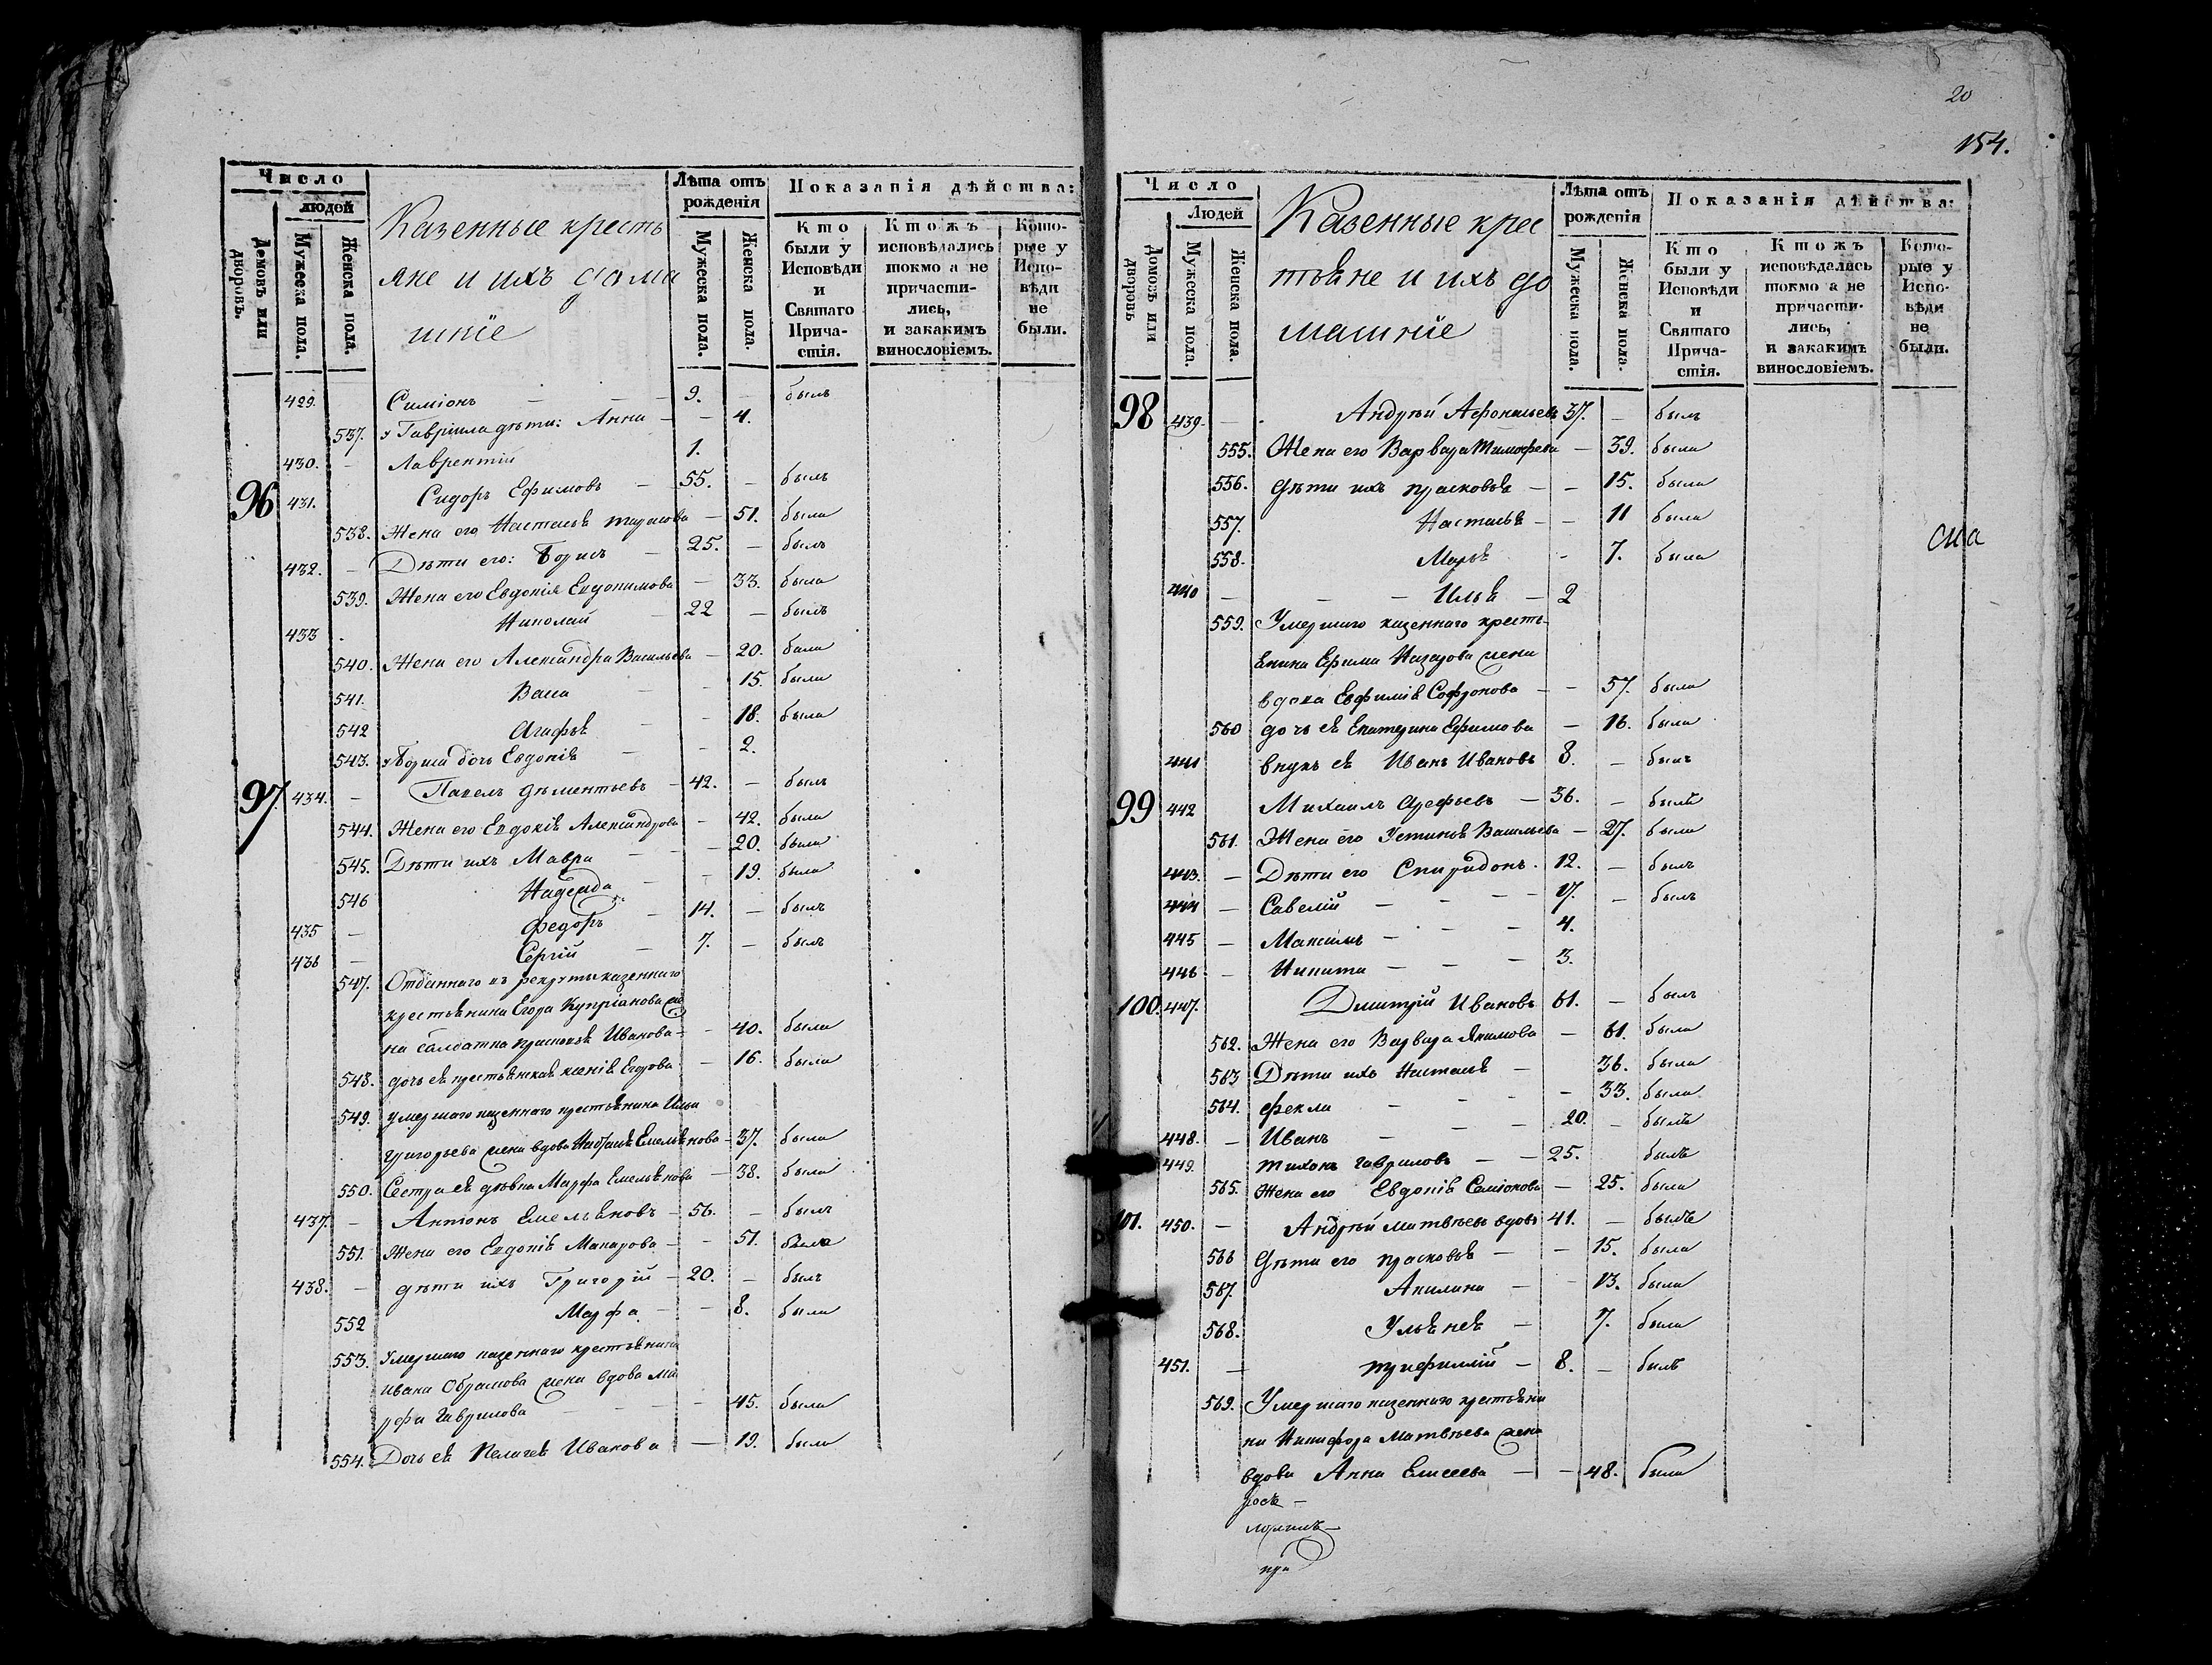 Число
людей
Домовъ или дворовъ.
Мужеска пола.
Женска пола.
Казенные кресть
яне и ихъ дома
шніе
Лѣта отъ рожденія
Мужеска пола.
Женска пола.
Показанія дѣйства:
Кто были у Исповѣди и Святаго Причастія.
Ктожъ исповѣдались токмо а не причастились, и закакимъ винословіемъ.
Которые у Исповѣди не были.
429. Симіонъ — 9. — былъ
537. у Гавріила дѣти: Анна — — 4.
430. — Лаврентій 1.
96 431. Сидоръ Ефимовъ — 55. — былъ
538. Жена его Настасья Тарасова — 51. была
432. — Дѣти его: Борисъ — 25. — былъ
539. Жена его Евдокія Евдокимова — 33. была
433 Николай — 22 — былъ
540. Жена его Александра Васильева — 20. была
541. Васа — 15. была
542 Агафья — 18. была
543. у Бориса дочь Евдокія — 2.
97 434. — Павелъ Дементьевъ — 42. — былъ
544. Жена его Евдокія Александрова — 42. была
545. Дѣти ихъ Мавра — 20. была
546 Надежда — 19. была
435 — Федоръ — 14. — былъ
436 — Сергій — 7. — былъ
547. Отданнаго въ рекруты казеннаго
крестьянина Егора Купріанова же
на салдатка Прасковья Иванова — 40. была
548. дочь ея крестьянская Ксенія Егорова — 16. была
549. умершаго казеннаго крестьянина Ильи
Григорьева жена вдова Емельянова — 37. была
550. Сестра ея дѣвка Марфа Емельянова — 38. была
437. — Антонъ Емельяновъ — 56. — былъ
551. Жена его Евдокія Макарова — 51. была
438. — дѣти ихъ Григорій — 20. — былъ
552 Марфа — 8. была
553. Умершаго казеннаго крестьянина
Ивана Обрамова жена вдова Ма
рфа Гаврилова — 45. была
554. Дочь ея Пелагея Иванова — 19. была
20
154.
Число
Людей
Домовъ или дворовъ
Мужеска пола.
Женска пола.
Казенные крес
тьяне и ихъ до
машніе
Лѣта отъ рожденія
Мужеска пола.
Женска пола.
Показанія дѣйства:
Кто были у Исповѣди и Святаго Причастія.
Ктожъ исповѣдались токмо а не причастились, и закакимъ винословіемъ.
Которые у Исповѣди не были.
98 439. — Андрей Афонасьевъ 37. — былъ
555. Жена его Варвара Тимофева — 39. была
556. Дѣти ихъ Прасковья — — 15. была
557. Настасья — — 11 была
558. Марья — 7. была
440 — — — Илья — 2
559. Умершаго казеннаго кресть-
янина Ефима Назарова жена
вдова Евфимія Софронова — — 57. была
560 дочь ея Екатерина Ефимова — 16. была
441 внукъ ея Иванъ Ивановъ 8. — былъ
99 442 Михаилъ Арефьевъ — 36. — былъ
561. Жена его Устинья Васильева — 27. была
443. — Дѣти его Спиридонъ. 12. — былъ
444 — Савелій — — — 17. — былъ
445 — Максимъ — — — 4.
446 — Никита — — — 3.
100. 447. Дмитрій Ивановъ 61. — былъ
562. Жена его Варвара Якимова — 61. была
563 Дѣти ихъ Настасья — 36. была
564. Фекла — — — 33. была
448. — Иванъ — — — 20. — былъ
449. Тихонъ Гавриловъ — — 25. былъ
565. Жена его Евдокія Семіонова — 25. была
101. 450. — Андрей Матвѣевъ вдовъ 41. — былъ
566 Дѣти его Прасковья — — 15. была
567. Акилина — — 13. была
568. Ульянея — 7. была
451. — Трифиллій — 8. — былъ
569. Умершаго казеннаго крестьяни
на Никифора Матвѣева жена
вдова Анна Елисеева — — 48. была